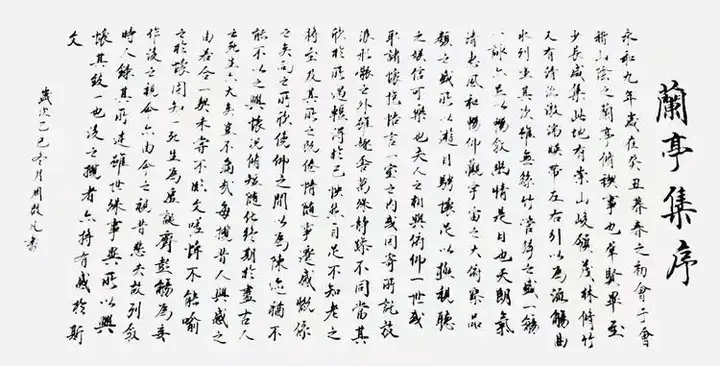 蘭亭集序
永和九年歲在癸丑暮春之初會于會
稽山陰之蘭亭脩禊事也羣賢畢至
少長咸集此地有崇山峻領茂林脩竹
又有清流激湍映帶左右引以為流觴曲
水列坐其次雖無絲竹管弦之盛一觴
一詠亦足以暢敘幽情是日也天朗氣
清惠風和暢仰觀宇宙之大俯察品
類之盛所以遊目騁懷足以極視聽
之娛信可樂也夫人之相與俯仰一世或
取諸懷抱悟言一室之內或因寄所託放
浪形骸之外雖趣舍萬殊靜躁不同當其
欣於所遇暫得於己快然自足不知老之
將至及其所之既倦情隨事遷感慨係
之矣向之所欣俛仰之間以為陳迹猶不
能不以之興懷況脩短隨化終期於盡古人
云死生亦大矣豈不痛哉每攬昔人興感之
由若合一契未嘗不臨文嗟悼不能喻
之於懷固知一死生為虛誕齊彭殤為妄
作後之視今亦由今之視昔悲夫故列敘
時人錄其所述雖世殊事異所以興
懷其致一也後之攬者亦將有感於斯
文
歲次巳冬月周凡書